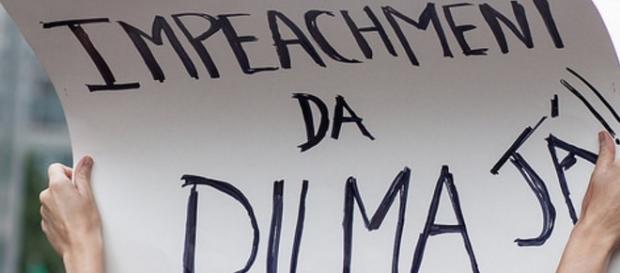 IMPEACHMENT
DA
DILMA JÁ!!